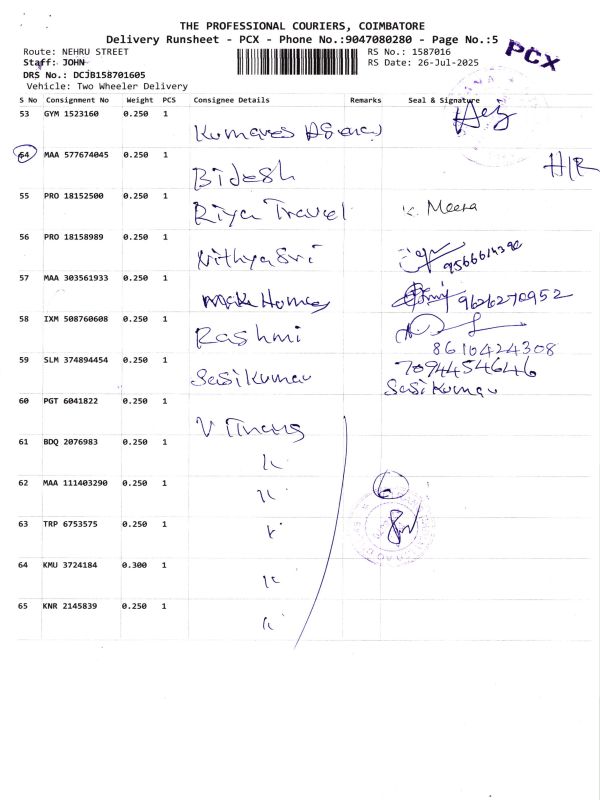 THE PROFESSIONAL COURIERS, COIMBATORE
Delivery Runsheet - PCX - Phone No.:9047080280 - Page No.:5
PCX
Route: NEHRU STREET RS No.: 1587016
Staff: JOHN RS Date: 26-Jul-2025
DRS No.: DCJB158701605
Vehicle: Two Wheeler Delivery
S No Consignment No Weight PCS Consignee Details Remarks Seal & Signature
53 GYM 1523160 0.250 1
54 MAA 577674045 0.250 1 Bidesh H/R
55 PRO 18152500 0.250 1 Riya Travel K. Meera
56 PRO 18158989 0.250 1 Nithya Sri
57 MAA 303561933 0.250 1 Homes 9626270952
58 IXM 508760608 0.250 1 Rashmi
8610424308
59 SLM 374894454 0.250 1 Sasi Kumar 7094454646
Sasi Kumar
60 PGT 6041822 0.250 1
61 BDQ 2076983 0.250 1
62 MAA 111403290 0.250 1 6
63 TRP 6753575 0.250 1
64 KMU 3724184 0.300 1
65 KNR 2145839 0.250 1